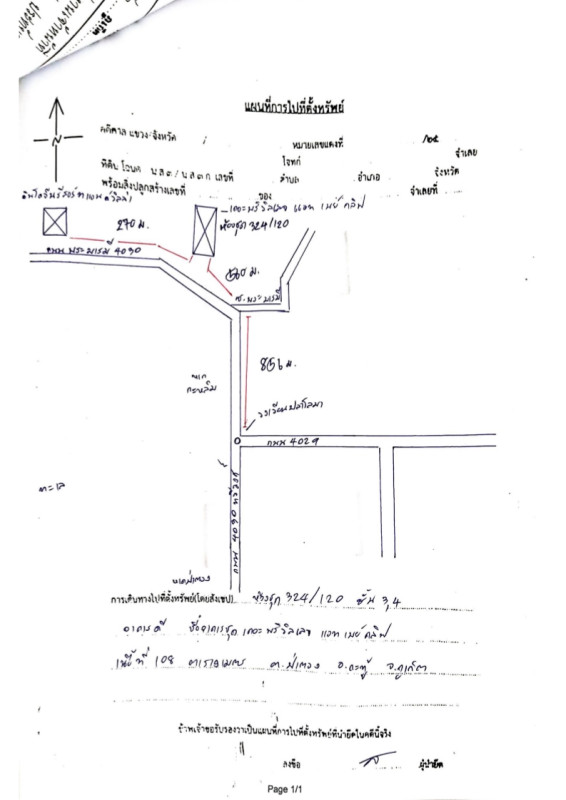 แผนที่การไปที่ตั้งทรัพย์
คดีศาล แขวง/จังหวัด
หมายเลขแดงที่ /๒๕
โจทก์ จำเลย
ที่ดิน โฉนด น.ส.๓/น.ส.๓ ก เลขที่ ตำบล อำเภอ จังหวัด
พร้อมสิ่งปลูกสร้างเลขที่ ของ จำเลยที่
เดอะ พริวิลเลจ แอท เบย์ คลิฟ
ห้องชุด 324/120
270 ม.
ถนน พระบารมี 4030
ซ.พระบารมี
856 ม.
ถนน 4029
ทะเล
หาดป่าตอง
การเดินทางไปที่ตั้งทรัพย์(โดยสังเขป) ห้องชุด 324/120 ชั้น 3,4
อาคารดี ชื่ออาคารชุด เดอะ พริวิลเลจ แอท เบย์ คลิฟ
เนื้อที่ 108 ตารางเมตร ต.ป่าตอง อ.กะทู้ จ.ภูเก็ต
ข้าพเจ้าขอรับรองว่าเป็นแผนที่การไปที่ตั้งทรัพย์ที่นำยึดในคดีนี้จริง
ลงชื่อ ผู้นำยึด
Page 1/1